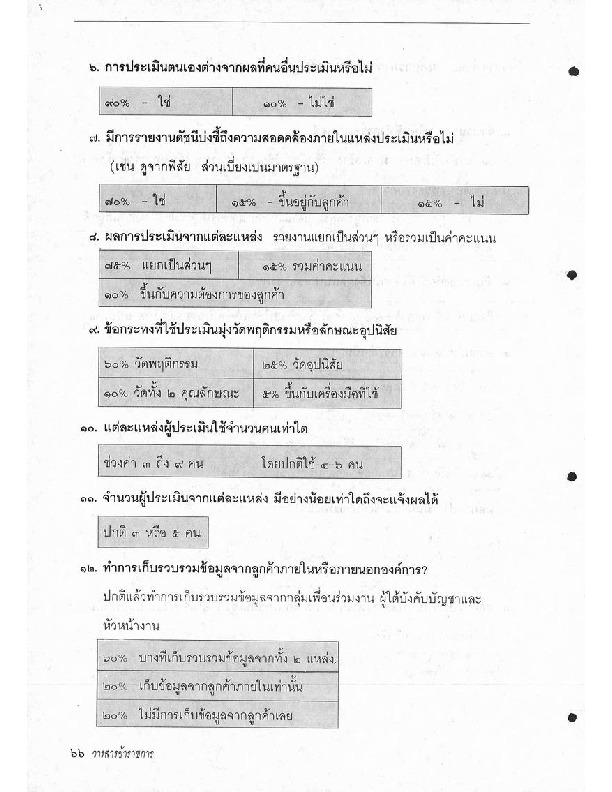 ๖. การประเมินตนเองต่างจากผลที่คนอื่นประเมินหรือไม่
๙๐% - ใช่ ๑๐% - ไม่ใช่
๗. มีการรายงานดัชนีบ่งชี้ถึงความสอดคล้องภายในแหล่งประเมินหรือไม่
(เช่น ดูจากพิสัย ส่วนเบี่ยงเบนมาตรฐาน)
๗๐% - ใช่ ๑๕% - ขึ้นอยู่กับลูกค้า ๑๕% - ไม่
๘. ผลการประเมินจากแต่ละแหล่ง รายงานแยกเป็นส่วนๆ หรือรวมเป็นค่าคะแนน
๗๕% แยกเป็นส่วนๆ ๑๕% รวมค่าคะแนน
๑๐% ขึ้นกับความต้องการของลูกค้า
๙. ข้อกระทงที่ใช้ประเมินมุ่งวัดพฤติกรรมหรือลักษณะอุปนิสัย
๖๐% วัดพฤติกรรม ๒๕% วัดอุปนิสัย
๑๐% วัดทั้ง ๒ คุณลักษณะ ๕% ขึ้นกับเครื่องมือที่ใช้
๑๐. แต่ละแหล่งผู้ประเมินใช้จำนวนคนเท่าใด
ช่วงค่า ๓ ถึง ๙ คน โดยปกติใช้ ๕ ๖ คน
๑๑. จำนวนผู้ประเมินจากแต่ละแหล่ง มีอย่างน้อยเท่าใดถึงจะแจ้งผลได้
ปกติ ๓ หรือ ๕ คน
๑๒. ทำการเก็บรวบรวมข้อมูลจากลูกค้าภายในหรือภายนอกองค์การ?
ปกติแล้วทำการเก็บรวบรวมข้อมูลจากกลุ่มเพื่อนร่วมงาน ผู้ใต้บังคับบัญชาและ
หัวหน้างาน
๖๐% บางทีเก็บรวบรวมข้อมูลจากทั้ง ๒ แหล่ง
๒๐% เก็บข้อมูลจากลูกค้าภายในเท่านั้น
๒๐% ไม่มีการเก็บข้อมูลจากลูกค้าเลย
๖๖ วารสารข้าราชการ